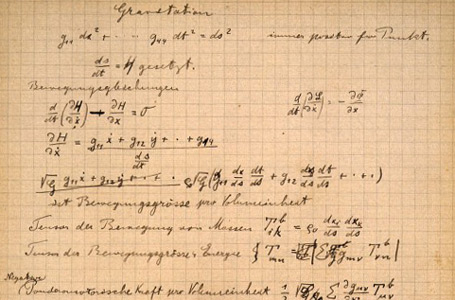 Gravitation
g₁₁ dx² + · · g₄₄ dt² = ds² immer positiv für Punkt.
ds/dt = H gesetzt.
Bewegungsgleichungen
d/dt (∂H/∂ẋ) − ∂H/∂x = 0 d/dt (∂/∂ẋ) = − ∂Φ/∂x
∂H/∂ẋ = (g₁₁ ẋ + g₁₂ ẏ + · + g₁₄) / (ds/dt)
√g (g₁₁ ẋ + g₁₂ ẏ + · · ·) √g (g₁₁ dx/ds dt/ds + g₁₂ dy/ds dt/ds + · + ·)
ist Bewegungsgrösse pro Volumeinheit
Tensor der Bewegung von Massen T^b_ik = ρ₀ dx_i/ds dx_k/ds
Tensor der Bewegungsgrösse u. Energie T_mn = Σ g_mν T^b_νn
Negative
Ponderomotorische Kraft pro Volumeinheit ½ √g Σ ∂g_μν/∂x_m T^b_μν